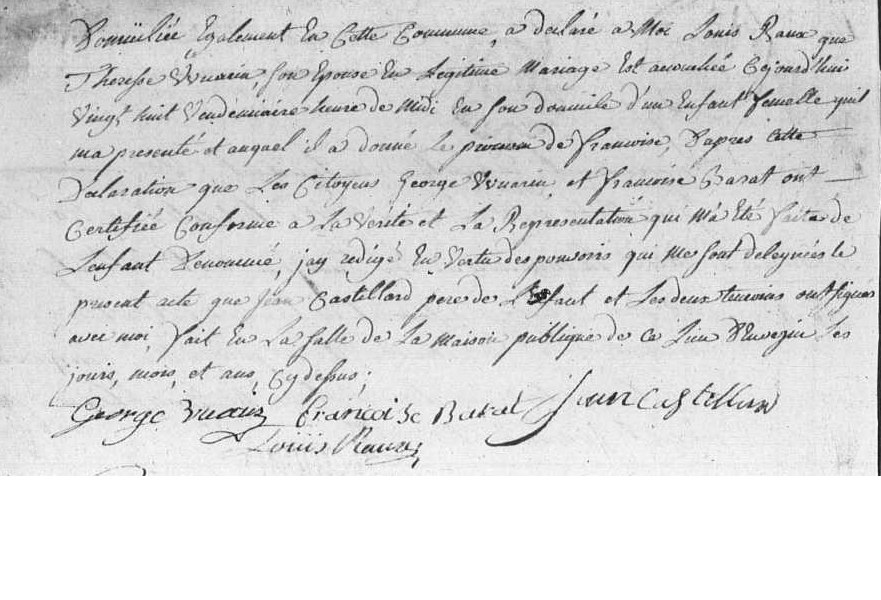 Domicilliée Egalement En Cette Commune, a declaré a Moi Louis Raux que
Therese Vuarin, son Epouse En Legitime Mariage Est accouchée Cejourd'hui
Vingt huit Vendemiaire heure de Midi En son domicile d'un Enfant femelle quil
ma presenté et auquel il a donné Le prenom de francoise, D'apres Cette
Declaration que Les Citoyens George Vuarin et francoise Barat ont
Certifiée Conforme a La Verité et La Representation qui M'a Eté faite de
Lenfant Denommé, jay redigé En Vertu des pouvoirs qui Me sont delegués le
present acte que jean Castellard pere de L'Enfant et Les deux temoins ont signés
avec moi, fait En La Salle de La Maison publique de Ce Lieu Les
jours, mois, et ans, Cydessus;
George Vuarin francoise Barat Jean Castellan
Louis Raux;